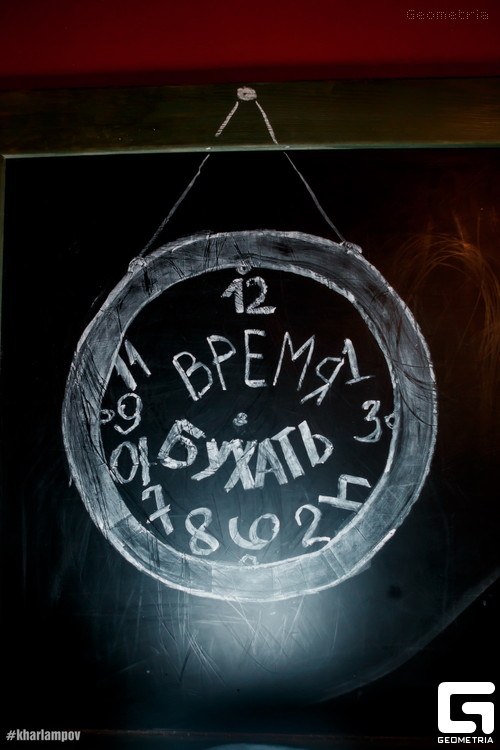 Geometria
12
11
ВРЕМЯ
1
9
3
БУХАТЬ
10
4
7
8
6
2
#kharlampov
G
GEOMETRIA